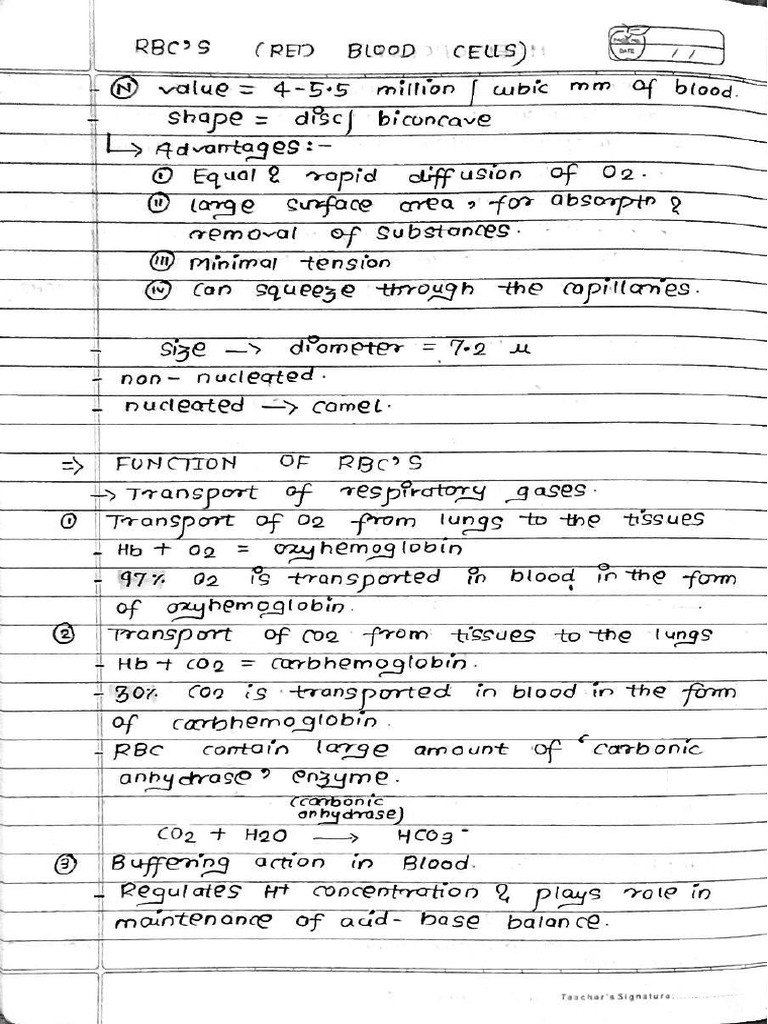 RBC'S (RED BLOOD CELLS)
DATE / /
- Ⓝ value = 4-5.5 million / cubic mm of blood.
- shape = disc/ biconcave
↳ Advantages:-
ⓘ Equal & rapid diffusion of O2.
ⓘⓘ large surface area, for absorptn & removal of substances.
ⓘⓘⓘ Minimal tension
ⓘⓥ can squeeze through the capillaries.
- size → diameter = 7.2 u
- non-nucleated.
- nucleated → camel.
⇒ FUNCTION OF RBC'S
→ Transport of respiratory gases.
① Transport of O2 from lungs to the tissues
- Hb + O2 = oxyhemoglobin
- 97% O2 is transported in blood in the form
of oxyhemoglobin.
② Transport of CO2 from tissues to the lungs
- Hb + CO2 = carbhemoglobin.
- 30% CO2 is transported in blood in the form
of carbhemoglobin.
- RBC contain large amount of 'carbonic
anhydrase' enzyme.
(carbonic
anhydrase)
CO2 + H2O → HCO3⁻
③ Buffering action in Blood.
- Regulates H+ concentration & plays role in
maintenance of acid-base balance.
Teacher's Signature: